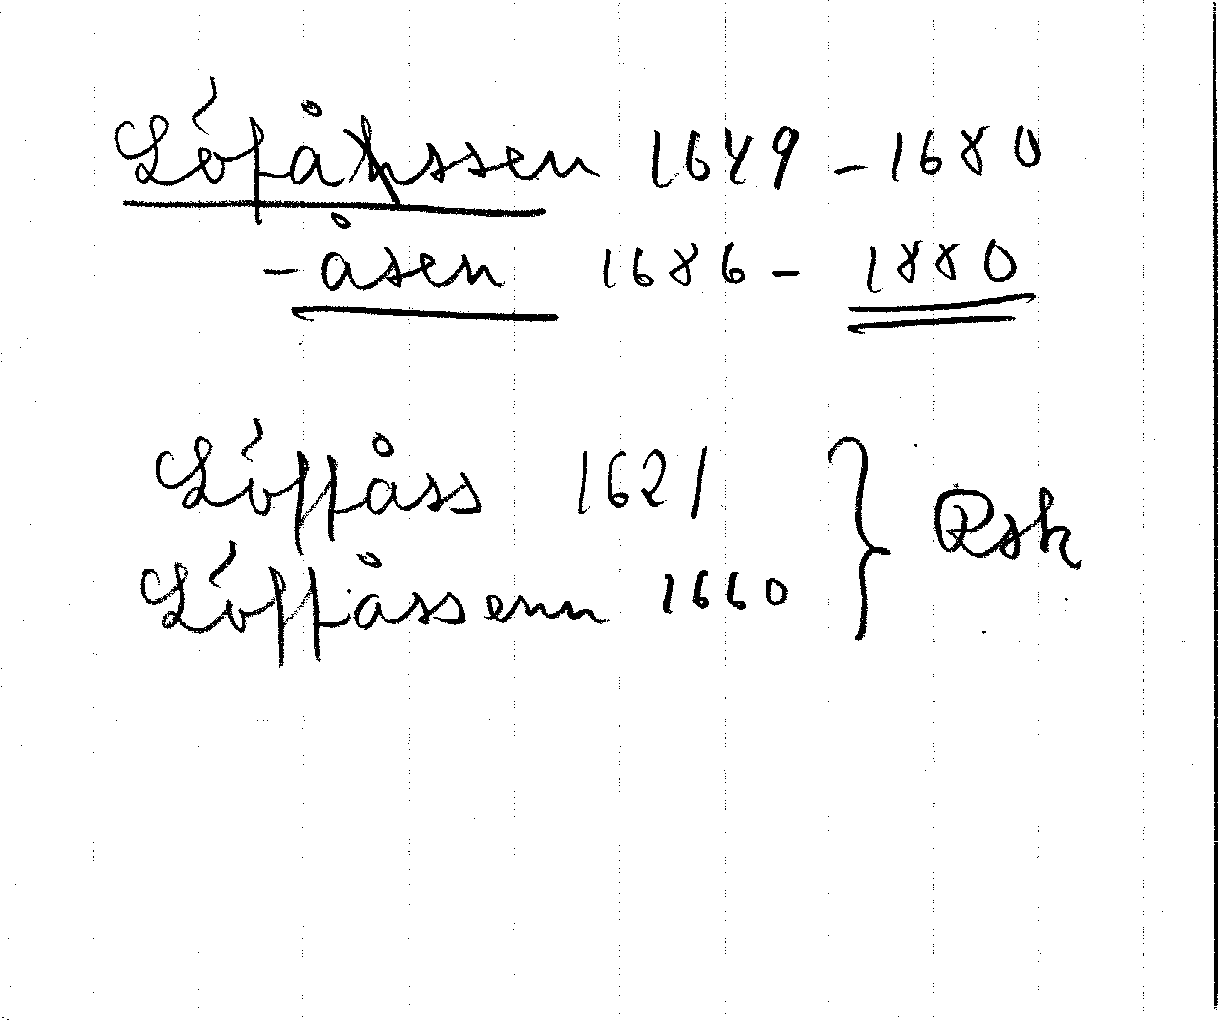 Löfåssen 1649 - 1680
- åsen 1686 - 1880
Löffåss 1621
Löffåssenn 1660
} Rsk